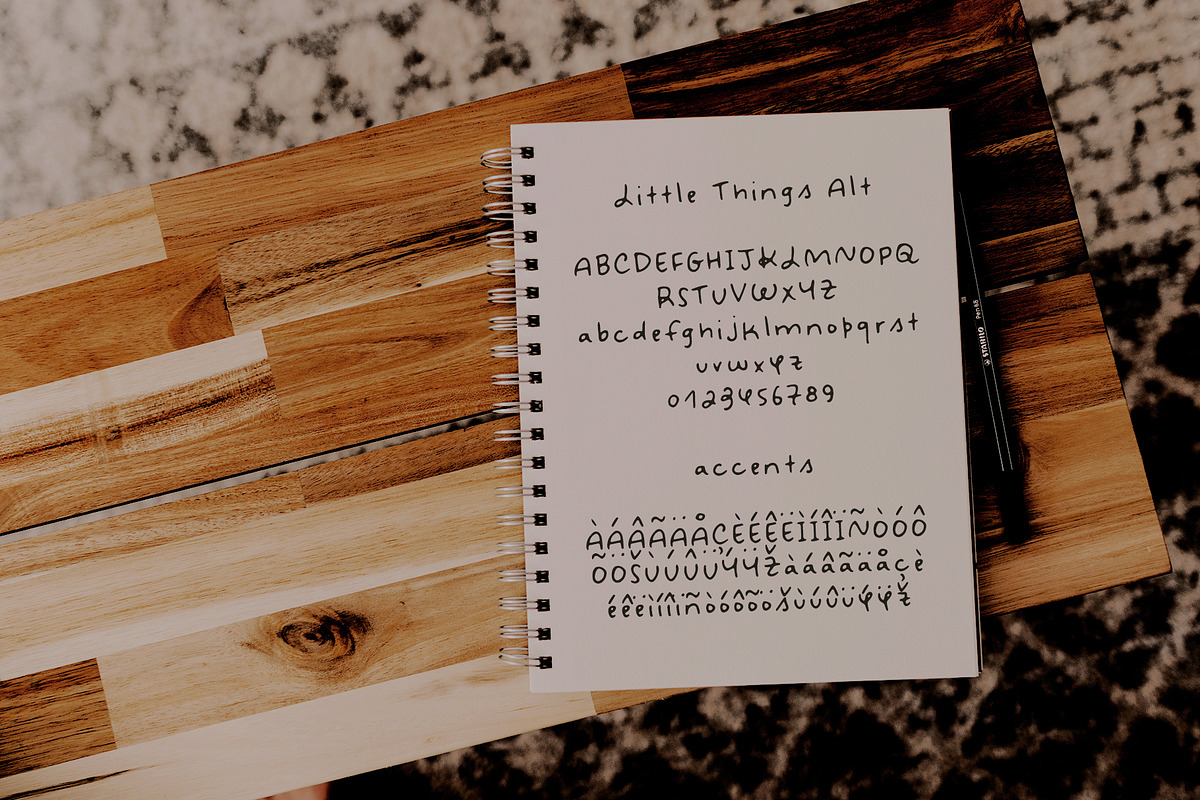 Little Things Alt
ABCDEFGHIJKLMNOPQ
RSTUVWXYZ
abcdefghijklmnopqrst
uvwxyz
0123456789
accents
ÀÁÂÃÄÅÇÈÉÊËÌÍÎÏÑÒÓÔ
ÕÖŠÙÚÛÜÝŸŽàáâãäåçè
éêëìíîïñòóôõöšùúûüýÿž
STABILO Pen 68